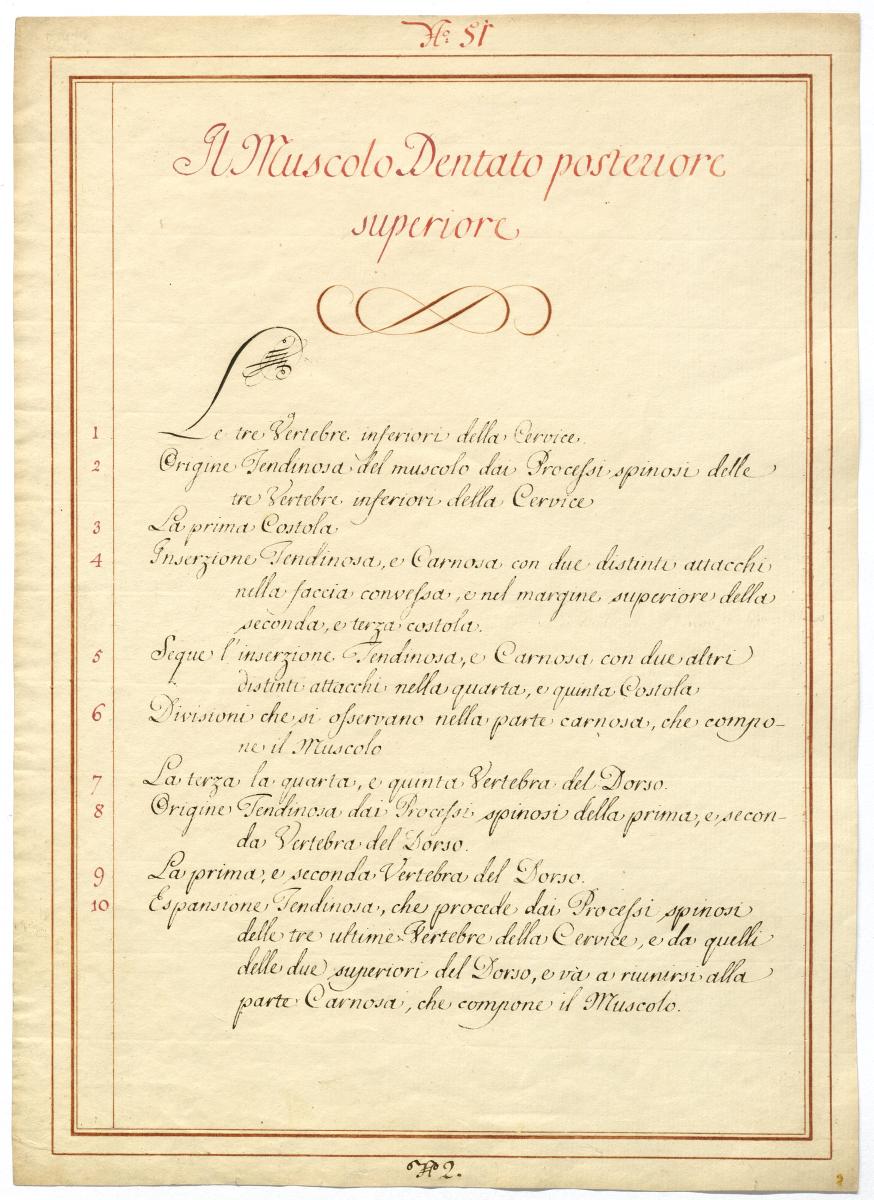 No: 51
Il Muscolo Dentato posteriore
superiore
1 Le tre Vertebre inferiori della Cervice.
2 Origine Tendinosa del muscolo dai Processi spinosi delle
tre Vertebre inferiori della Cervice
3 La prima Costola
4 Inserzione Tendinosa, e Carnosa con due distinti attacchi
nella faccia convessa, e nel margine superiore della
seconda, e terza costola.
5 Segue l'inserzione Tendinosa, e Carnosa con due altri
distinti attacchi nella quarta, e quinta Costola
6 Divisioni che si osservano nella parte carnosa, che compo-
ne il Muscolo
7 La terza la quarta, e quinta Vertebra del Dorso.
8 Origine Tendinosa dai Processi spinosi della prima, e secon-
da Vertebra del Dorso.
9 La prima, e seconda Vertebra del Dorso.
10 Espansione Tendinosa, che procede dai Processi spinosi
delle tre ultime Vertebre della Cervice, e da quelli
delle due superiori del Dorso, e và a riunirsi alla
parte Carnosa, che compone il Muscolo.
No 2.